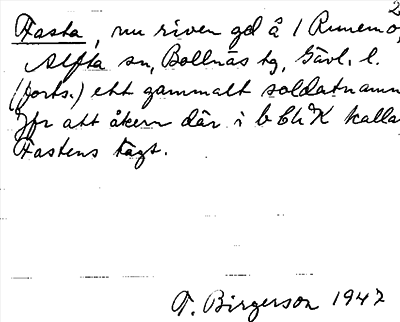 2
Hasta, nu riven gd å 1 Runemo,
Alfta sn, Bollnäs tg, Gävl. l.
(forts.) ett gammalt soldatnamn
Jfr att åkern där i bbhK kalla
Hastens tägt.
T. Birgerson 1947